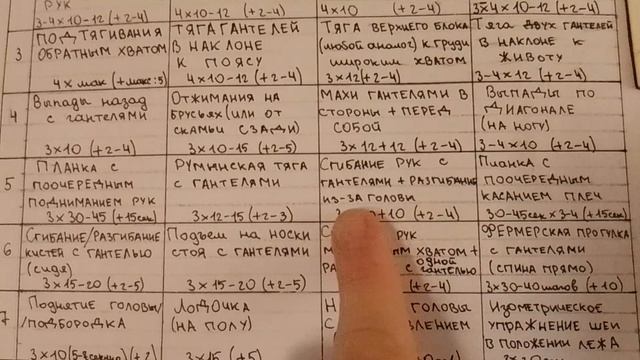 РУК
3-4×10-12 (+2-4)
4×10-12 (+2-4)
4×10 (+2-4)
3×4×10-12 (+2-4)
3
ПОДТЯГИВАНИЯ
ОБРАТНЫМ ХВАТОМ
4×мак (+макс:5)
ТЯГА ГАНТЕЛЕЙ
В НАКЛОНЕ
К ПОЯСУ
4×10-12 (+2-4)
ТЯГА ВЕРХНЕГО БЛОКА
(любой аналог) К ГРУДИ
ШИРОКИМ ХВАТОМ
3×12 (+2-4)
Тяга ДВУХ ГАНТЕЛЕЙ
В НАКЛОНЕ К
ЖИВОТУ
3-4×12 (+2-4)
4
Выпады назад
с гантелями
3×10 (+2-4)
ОТЖИМАНИЯ НА
БРУСЬЯХ (ИЛИ ОТ
СКАМЬИ СЗАДИ)
3×10-15 (+2-5)
МАХИ ГАНТЕЛЯМИ В
СТОРОНЫ + ПЕРЕД
СОБОЙ
3×12+12 (+2-4)
ВЫПАДЫ ПО
ДИАГОНАЛЕ
(НА НОГУ)
3-4×10 (+2-4)
5
ПЛАНКА С
ПООЧЕРЕДНЫМ
ПОДНИМАНИЕМ РУК
3×30-45 (+15сек)
РУМЫНСКАЯ ТЯГА
С ГАНТЕЛЯМИ
3×12-15 (+2-3)
СГИБАНИЕ РУК С
ГАНТЕЛЯМИ + РАЗГИБАНИЕ
ИЗ-ЗА ГОЛОВЫ
+10 (+2-4)
Планка с
ПООЧЕРЕДНЫМ
КАСАНИЕМ ПЛЕЧ
30-45сек×3-4 (+15сек)
6
СГИБАНИЕ/РАЗГИБАНИЕ
КИСТЕЙ С ГАНТЕЛЬЮ
(сидя)
3×15-20 (+2-5)
Подъем на носки
СТОЯ С ГАНТЕЛЯМИ
3×15-20 (+2-5)
РУК
ХВАТОМ +
одной
С ГАНТЕЛЬЮ
(+2-4)
ФЕРМЕРСКАЯ ПРОГУЛКА
С ГАНТЕЛЯМИ
(СПИНА ПРЯМО)
3×30-40шагов (+10)
7
Поднятие головы/
/ПОДБОРОДКА
ЛОДОЧКА
(НА ПОЛУ)
3×15 (+5)
ГОЛОВЫ
Изометрическое
УПРАЖНЕНИЕ ШЕИ
В ПОЛОЖЕНИИ ЛЕЖА